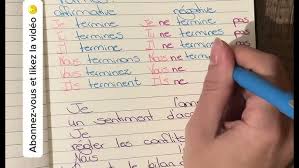 Abonnez-vous et likez la vidéo
affirmative négative
Je termine Je ne termine pas
Tu termines Tu ne termines pas
Il termine Il ne termine pas
Nous terminons Nous ne termin
Vous terminez Vous ne
Ils terminent Ils ne
Je
un sentiment d'a
Je
régler les conflits
Nous
le bilan